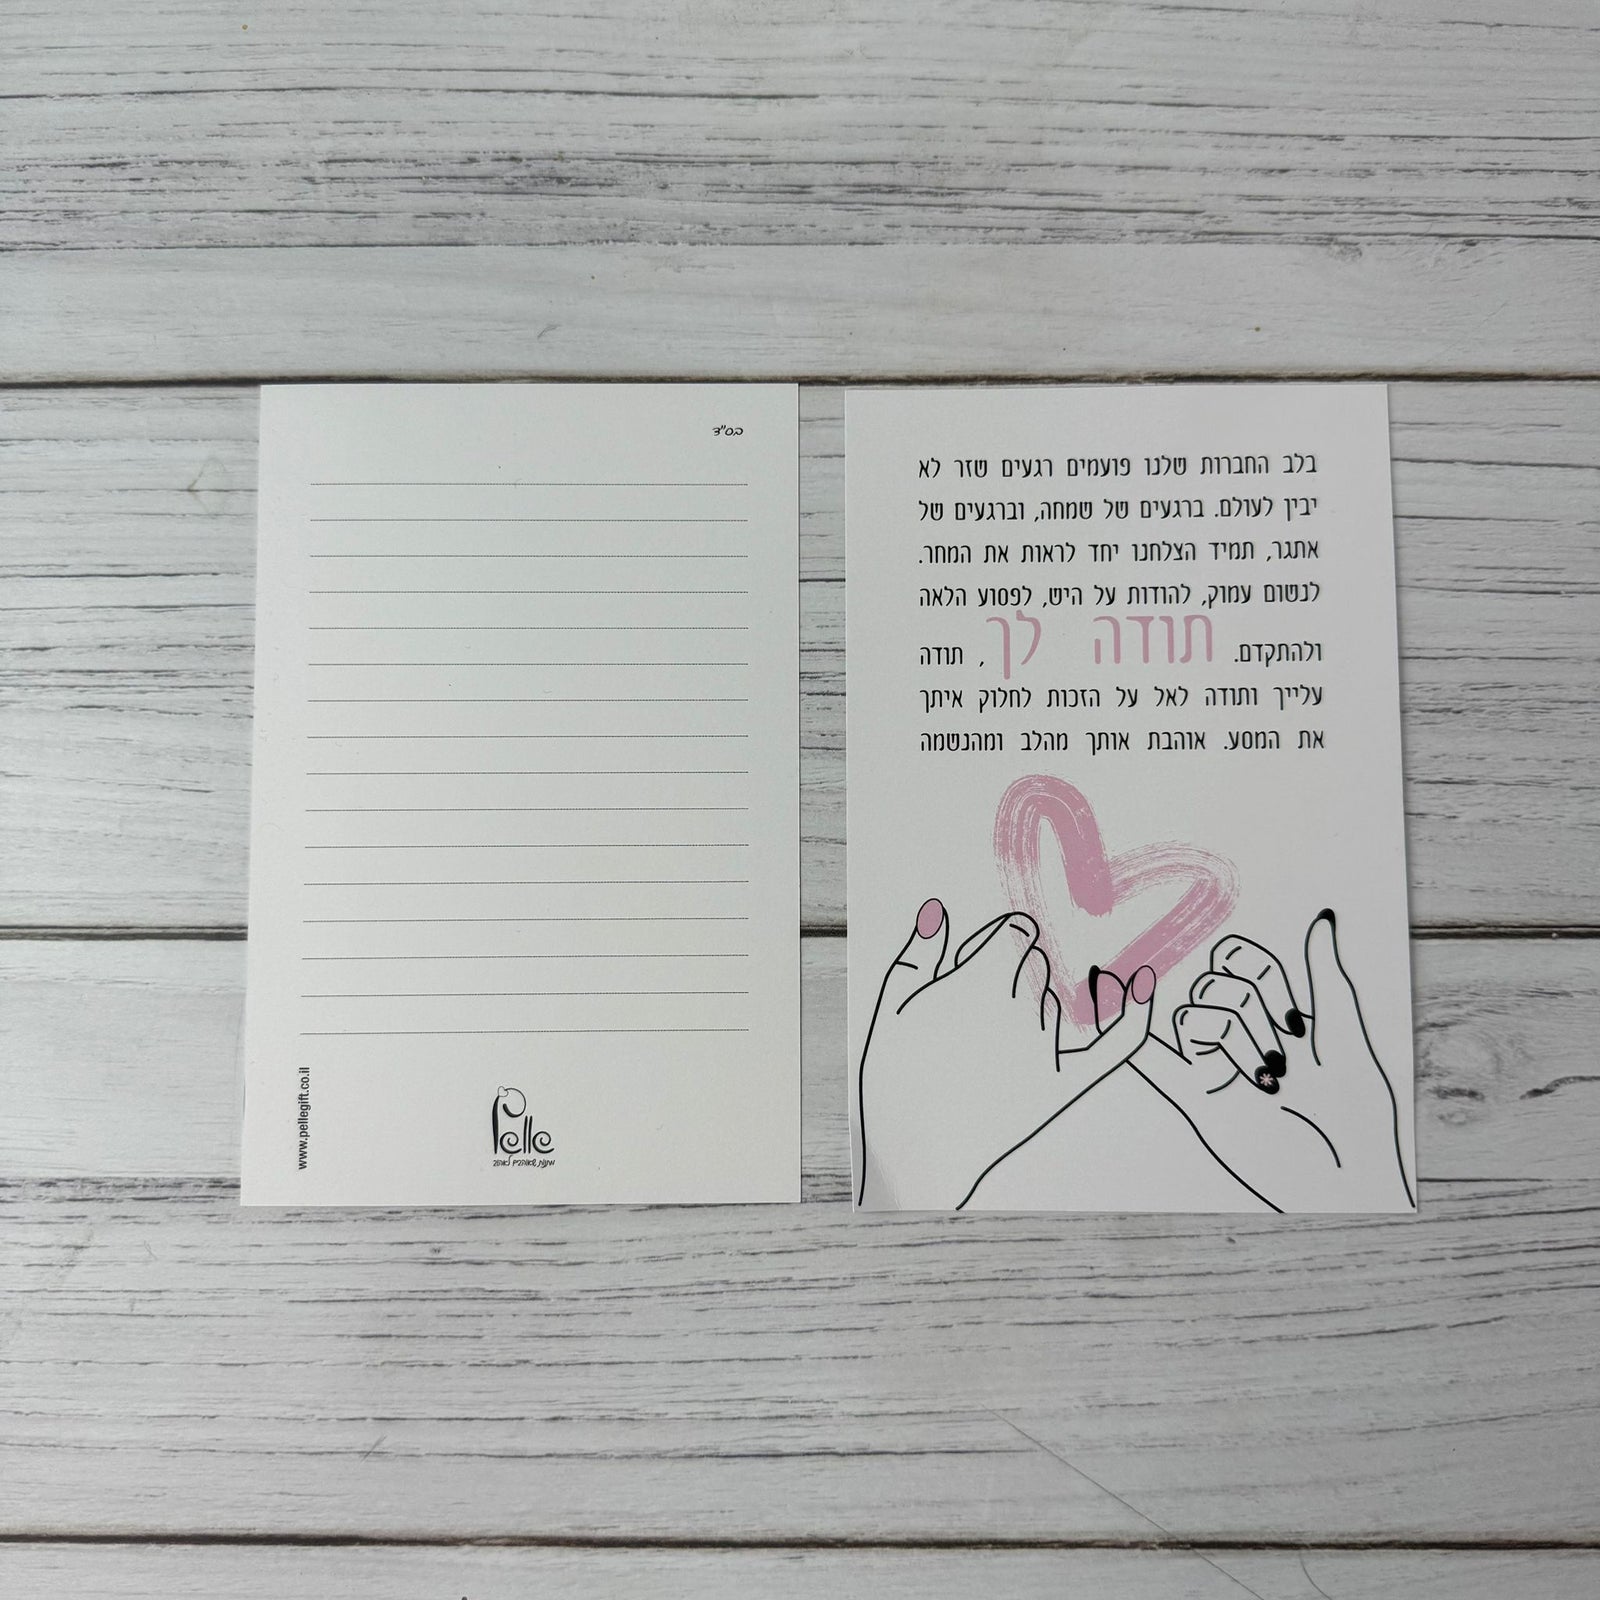 בס"ד
www.pellegift.co.il
Pelle
מתנות שאוהבים לאהוב
בלב החברות שלנו פועמים רגעים שזר לא
יבין לעולם. ברגעים של שמחה, וברגעים של
אתגר, תמיד הצלחנו יחד לראות את המחר.
לנשום עמוק, להודות על היש, לפסוע הלאה
ולהתקדם. תודה לך, תודה
עלייך ותודה לאל על הזכות לחלוק איתך
את המסע. אוהבת אותך מהלב ומהנשמה